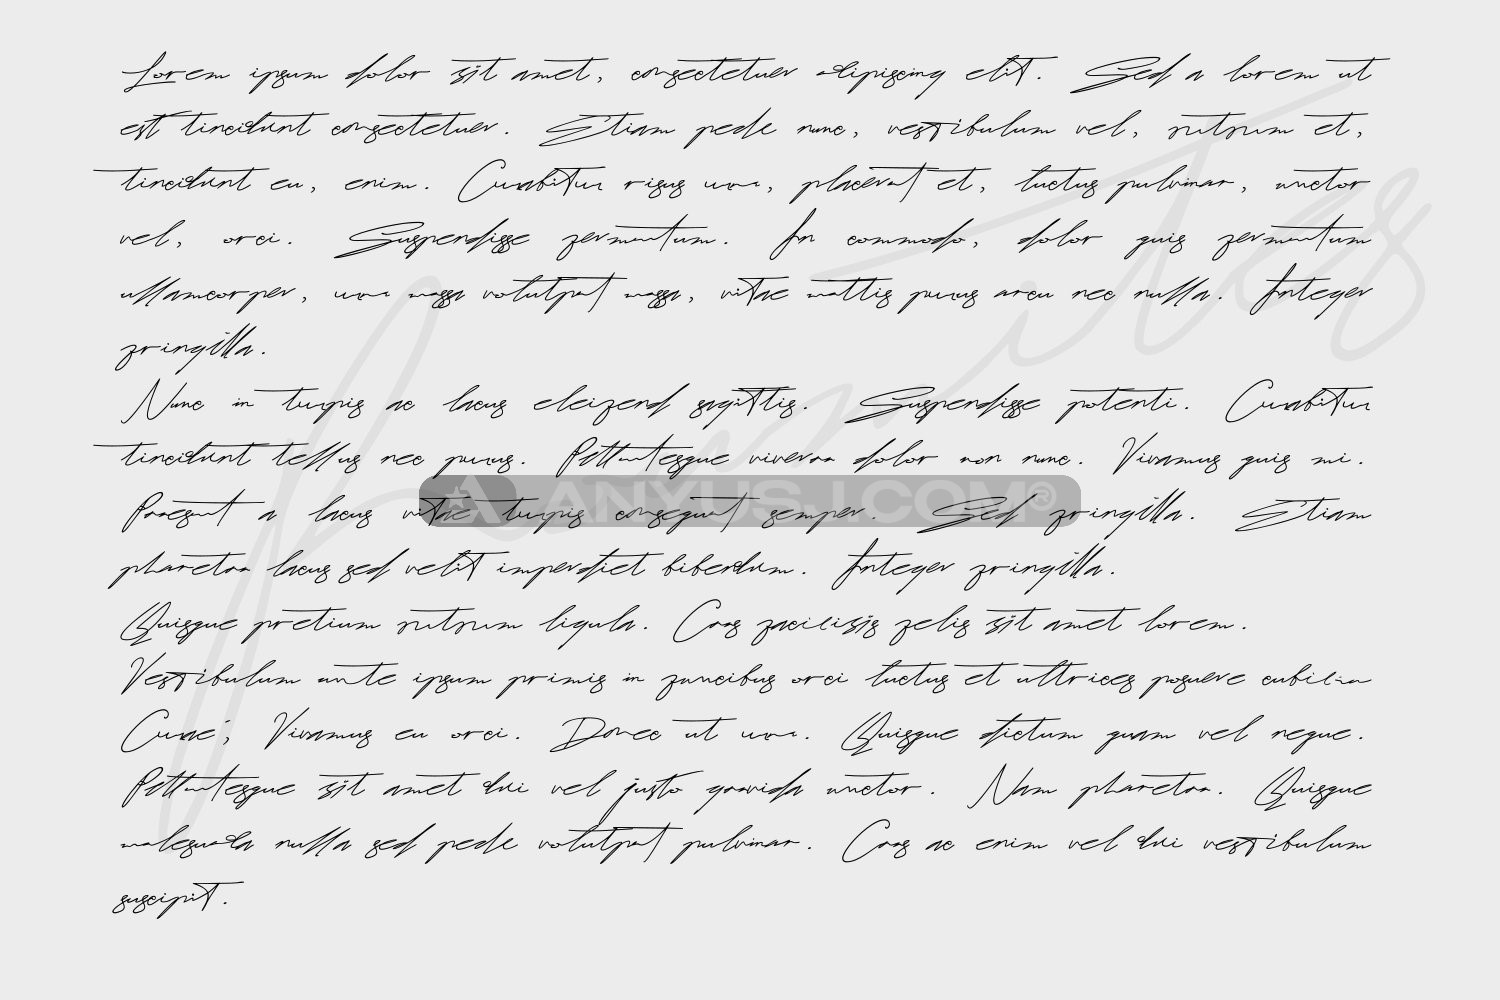 Lorem ipsum dolor sit amet, consectetuer adipiscing elit. Sed a lorem ut
est tincidunt consectetuer. Etiam pede nunc, vestibulum vel, rutrum et,
tincidunt eu, enim. Curabitur risus urna, placerat et, luctus pulvinar, auctor
vel, orci. Suspendisse fermentum. In commodo, dolor quis fermentum
ullamcorper, urna massa volutpat massa, vitae mattis purus arcu nec nulla. Integer
fringilla.
Nunc in turpis ac lacus eleifend sagittis. Suspendisse potenti. Curabitur
tincidunt tellus nec purus. Pellentesque viverra dolor non nunc. Vivamus quis mi.
Praesent a lacus vitae turpis consequat semper. Sed fringilla. Etiam
ANYUSJ.COM®
pharetra lacus sed velit imperdiet bibendum. Integer fringilla.
Quisque pretium rutrum ligula. Cras facilisis felis sit amet lorem.
Vestibulum ante ipsum primis in faucibus orci luctus et ultrices posuere cubilia
Curae; Vivamus eu orci. Donec ut urna. Quisque dictum quam vel neque.
Pellentesque sit amet dui vel justo gravida auctor. Nam pharetra. Quisque
malesuada nulla sed pede volutpat pulvinar. Cras ac enim vel dui vestibulum
suscipit.